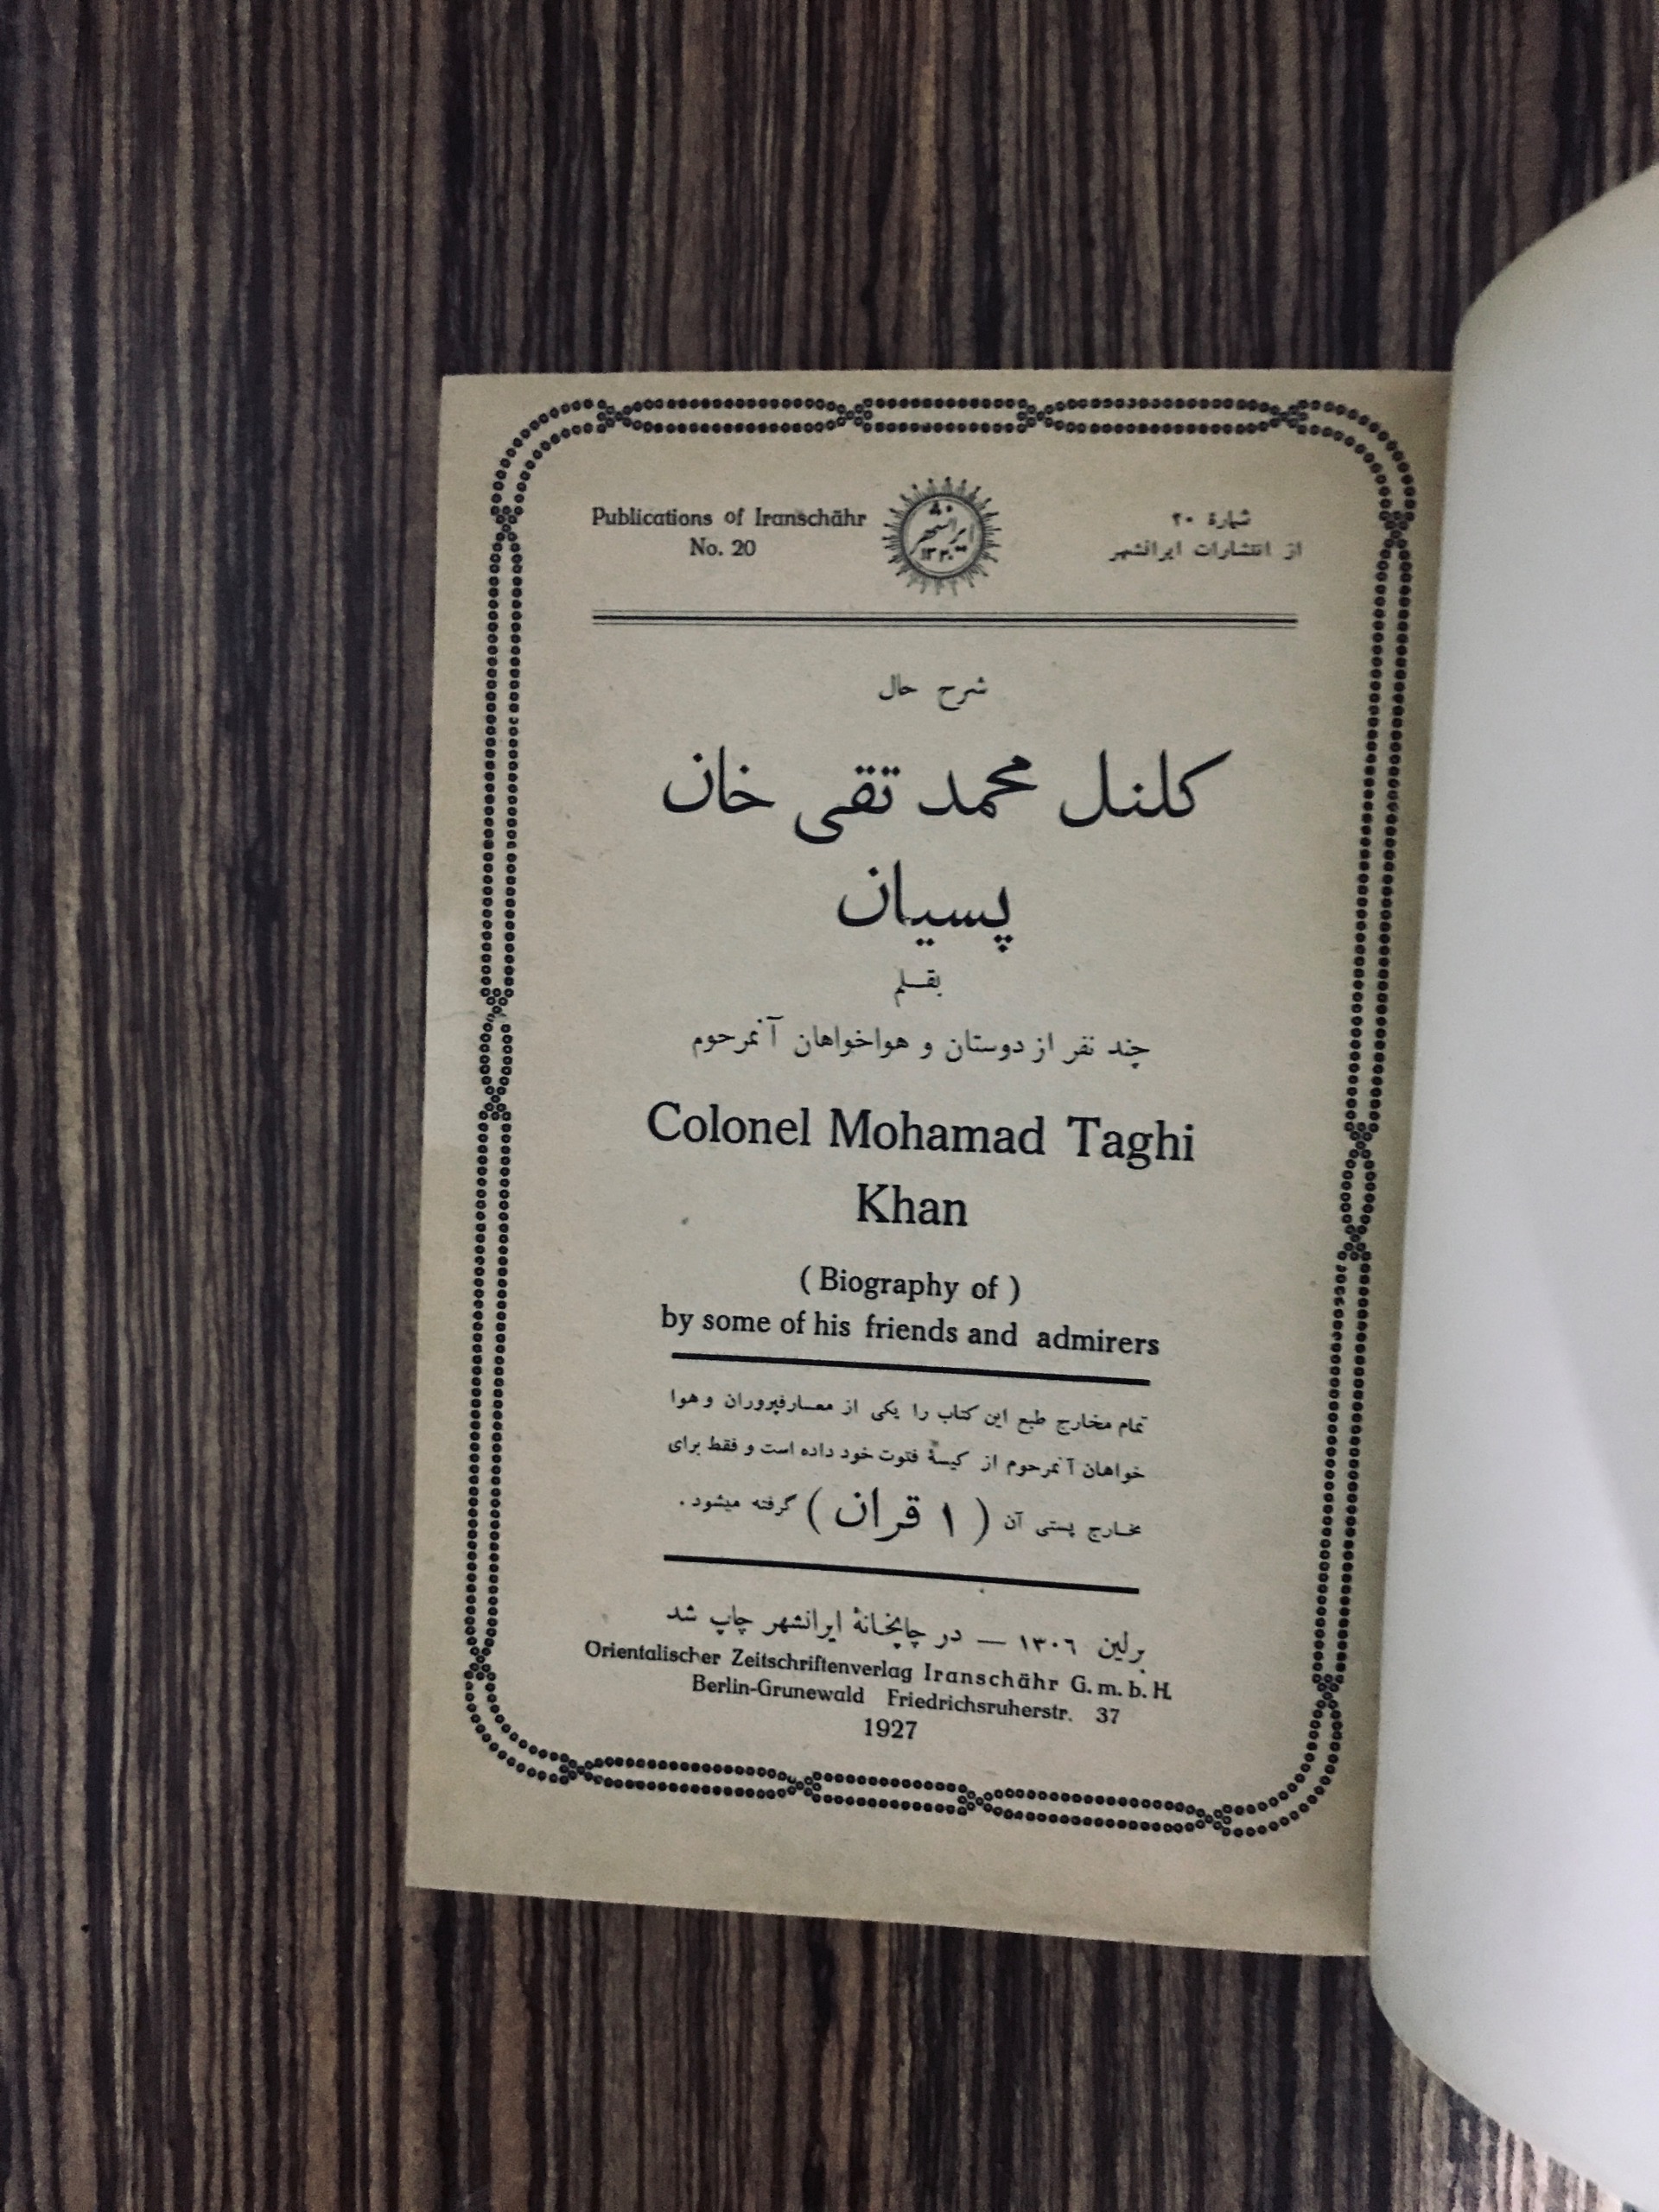 Publications of Iranschähr
No. 20
ایرانشهر
شمارهٔ ۲۰
از انتشارات ایرانشهر
شرح حال
کلنل محمد تقی خان
پسیان
بقلم
چند نفر از دوستان و هواخواهان آنمرحوم
Colonel Mohamad Taghi
Khan
( Biography of )
by some of his friends and admirers
تمام مخارج طبع این کتاب را یکی از معارفپروران و هوا
خواهان آنمرحوم از کیسهٔ فتوت خود داده است و فقط برای
مخارج پستی آن ( ۱ قران ) گرفته میشود.
برلین ۱۳۰۶ — در چاپخانهٔ ایرانشهر چاپ شد
Orientalischer Zeitschriftenverlag Iranschähr G. m. b. H.
Berlin-Grunewald Friedrichsruherstr. 37
1927